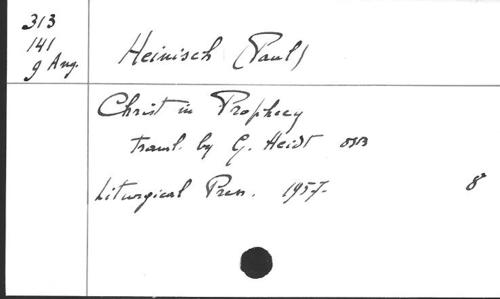 313
141
9 Aug.
Heinisch (Paul)
Christ in Prophecy
transl. by G. Heidt OSB
Liturgical Press. 1957.
8°